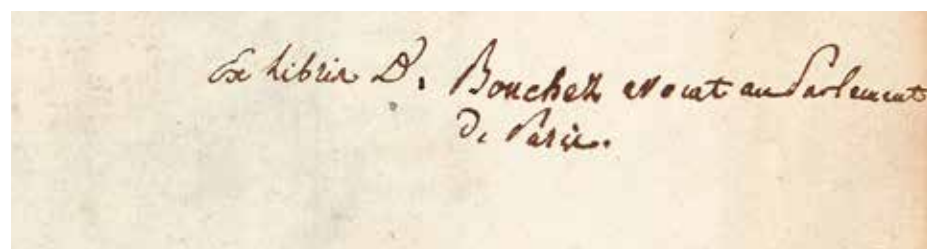 Ex libris D. Boucher avocat au Parlement
De Paris.